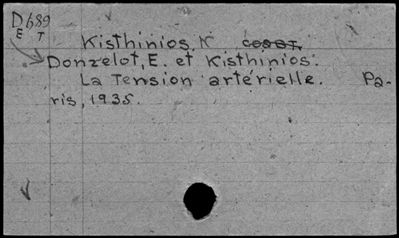 D689
E T
Kisthinios, N
Donzelot, E. et Kisthinios.
La Tension artérielle. Pa-
ris, 1935.